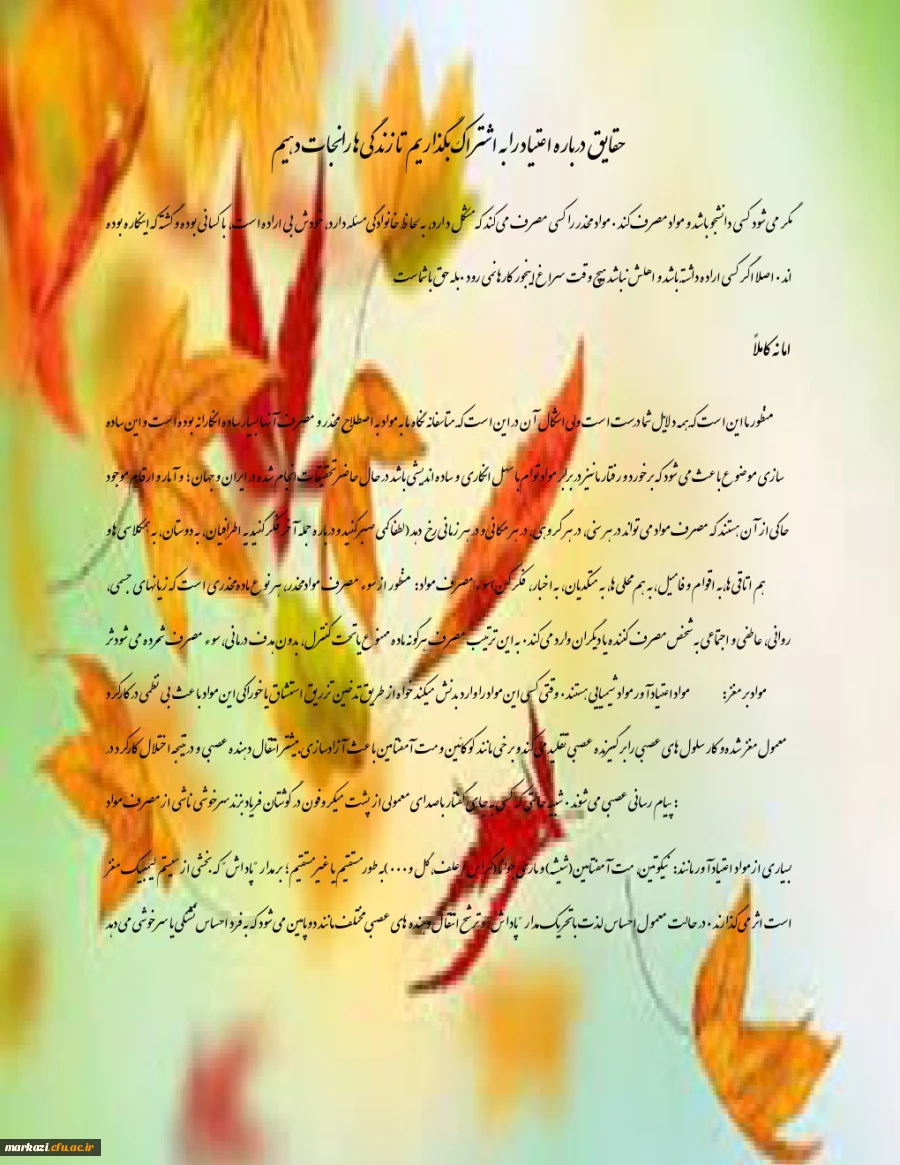 حقایق درباره اعتیاد را به اشتراک بگذاریم تا زندگی ها را نجات دهیم
مگر می شود کسی دانشجو باشد و مواد مصرف کند. مواد مخدر را کسی مصرف می کند که مشکل دارد، به لحاظ خانوادگی مسئله دارد، خودش بی اراده است، با کسانی بوده و گشته که اینکاره بوده
اند. اصلا اگر کسی اراده داشته باشد و اهلش نباشد هیچ وقت سراغ اینجور کارها نمی رود. بله حق با شماست
اما نه کاملاً
منظور ما این است که همه دلایل شما درست است ولی اشکال آن در این است که متاسفانه نگاه ما به مواد به اصطلاح مخدر و مصرف آنها بسیار ساده انگارانه بوده است و این ساده
سازی موضوع باعث می شود که برخورد و رفتار ما نیز در برابر مواد توام با سهل انگاری و ساده اندیشی باشد در حال حاضر تحقیقات انجام شده در ایران و جهان؛ و آمار و ارقام موجود
حاکی از آن هستند که مصرف مواد می تواند در هر سنی، در هر گروهی، در هر مکانی و در هر زمانی رخ دهد (لطفا کمی صبر کنید و درباره جمله آخر فکر کنید به اطرافیان، به دوستان، به همکلاسی ها و
هم اتاقی ها، به اقوام و فامیل، به هم محلی ها، به همکدیان، به اخبار، فکر کن) سوء مصرف مواد: منظور از سوء مصرف مواد مخدر، هر نوع ماده مخدری است که زیانهای جسمی،
روانی، عاطفی و اجتماعی به شخص مصرف کننده یا دیگران وارد می کند. به این ترتیب مصرف هرگونه ماده ممنوع یا تحت کنترل، بدون هدف درمانی، سوء مصرف شمرده می شود
مواد بر مغز: مواد اعتیادآور مواد شیمیایی هستند. وقتی کسی این مواد را وارد بدنش میکند خواه از طریق تدخین تزریق استنشاق یا خوراکی این مواد باعث بی نظمی در کارکرد
معمول مغز شده و کار سلول های عصبی را بر گیرنده عصبی تقلید می کند و برخی مانند کوکائین و مت آمفتامین باعث آزادسازی بیشتر انتقال دهنده عصبی و در نتیجه اختلال کارکرد در
پیام رسانی عصبی می شوند. شبیه حالتی که کسی به جای گفتار با صدای معمولی از پشت میکروفون در گوشتان فریاد بزند سرخوشی ناشی از مصرف مواد :
بسیاری از مواد اعتیادآور مانند: نیکوتین، مت آمفتامین(شیشه) و ماری جوانا(گراس، علف، گل و ...) به طور مستقیم یا غیر مستقیم؛ بر مدار "پاداش" که بخشی از سیستم لیمبیک مغز
است اثر می گذارند. در حالت معمول احساس لذت با تحریک مدار "پاداش" و ترشح انتقال دهنده های عصبی مختلف مانند دوپامین می شود که به فرد احساس نشئگی یا سرخوشی می دهد
markazi.cfu.ac.ir